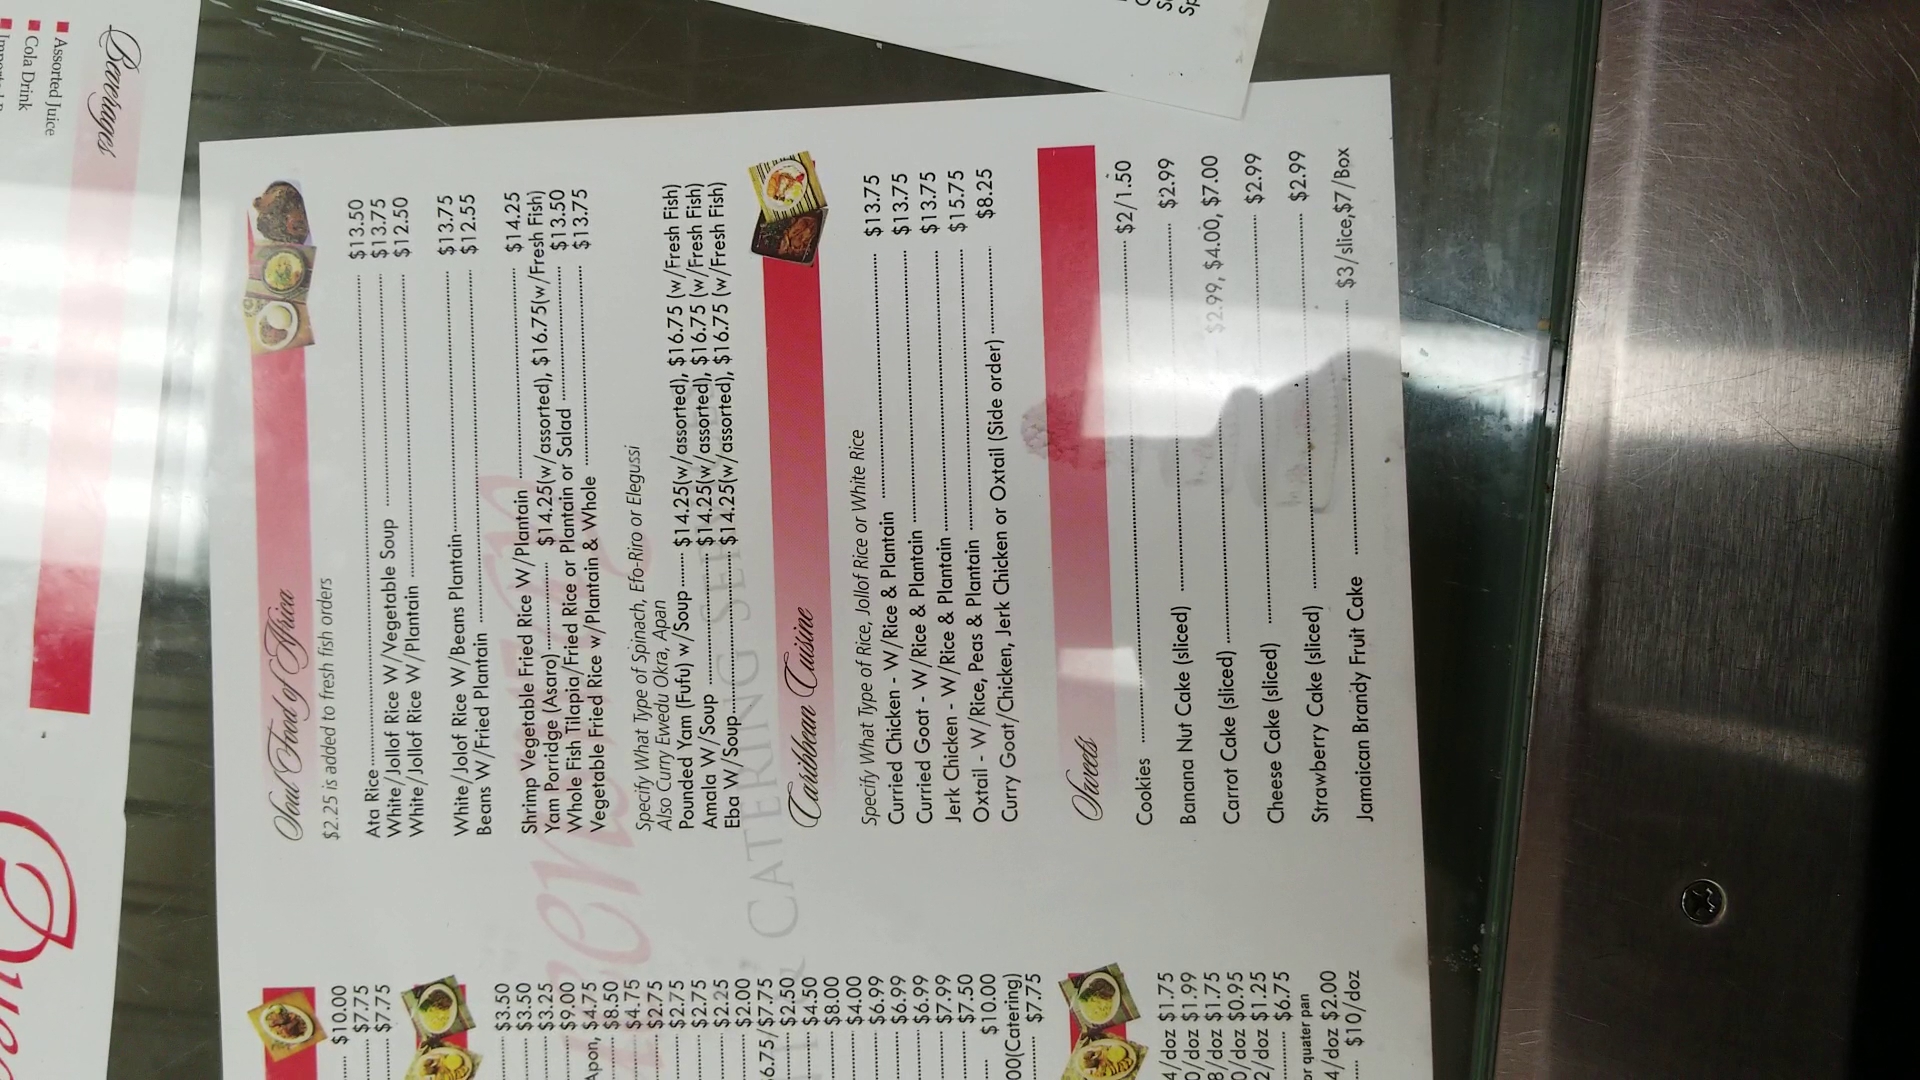 Beverages
Assorted Juice
Cola Drink
Soul Food of Africa
$2.25 is added to fresh fish orders
Ata Rice $13.50
White/Jollof Rice W/Vegetable Soup $13.75
White/Jollof Rice W/Plantain $12.50
White/Jolof Rice W/Beans Plantain $13.75
Beans W/Fried Plantain $12.55
Shrimp Vegetable Fried Rice W/Plantain $14.25
Yam Porridge (Asaro) $14.25(w/assorted), $16.75(w/Fresh Fish)
Whole Fish Tilapia/Fried Rice or Plantain or Salad $13.50
Vegetable Fried Rice w/Plantain & Whole $13.75
Specify What Type of Spinach, Efo-Riro or Elegussi
Also Curry Ewedu Okra, Apan
Pounded Yam (Fufu) w/Soup $14.25(w/assorted), $16.75 (w/Fresh Fish)
Amala W/Soup $14.25(w/assorted), $16.75 (w/Fresh Fish)
Eba W/Soup $14.25(w/assorted), $16.75 (w/Fresh Fish)
CATERING
Caribbean Cuisine
Specify What Type of Rice, Jollof Rice or White Rice
Curried Chicken - W/Rice & Plantain $13.75
Curried Goat - W/Rice & Plantain $13.75
Jerk Chicken - W/Rice & Plantain $13.75
Oxtail - W/Rice, Peas & Plantain $15.75
Curry Goat/Chicken, Jerk Chicken or Oxtail (Side order) $8.25
Sweets
Cookies $2/1.50
Banana Nut Cake (sliced) $2.99
Carrot Cake (sliced) $2.99, $4.00, $7.00
Cheese Cake (sliced) $2.99
Strawberry Cake (sliced) $2.99
Jamaican Brandy Fruit Cake $3/slice,$7/Box
$10.00
$7.75
$7.75
$3.50
$3.50
$3.25
$9.00
Apon, $4.75
$8.50
$4.75
$2.75
$2.75
$2.75
$2.25
$2.00
6.75/$7.75
$2.50
$4.50
$8.00
$4.00
$6.99
$6.99
$6.99
$7.99
$7.50
$10.00
00(Catering)
$7.75
4/doz $1.75
0/doz $1.99
8/doz $1.75
0/doz $0.95
2/doz $1.25
$6.75
or quater pan
4/doz $2.00
$10/doz